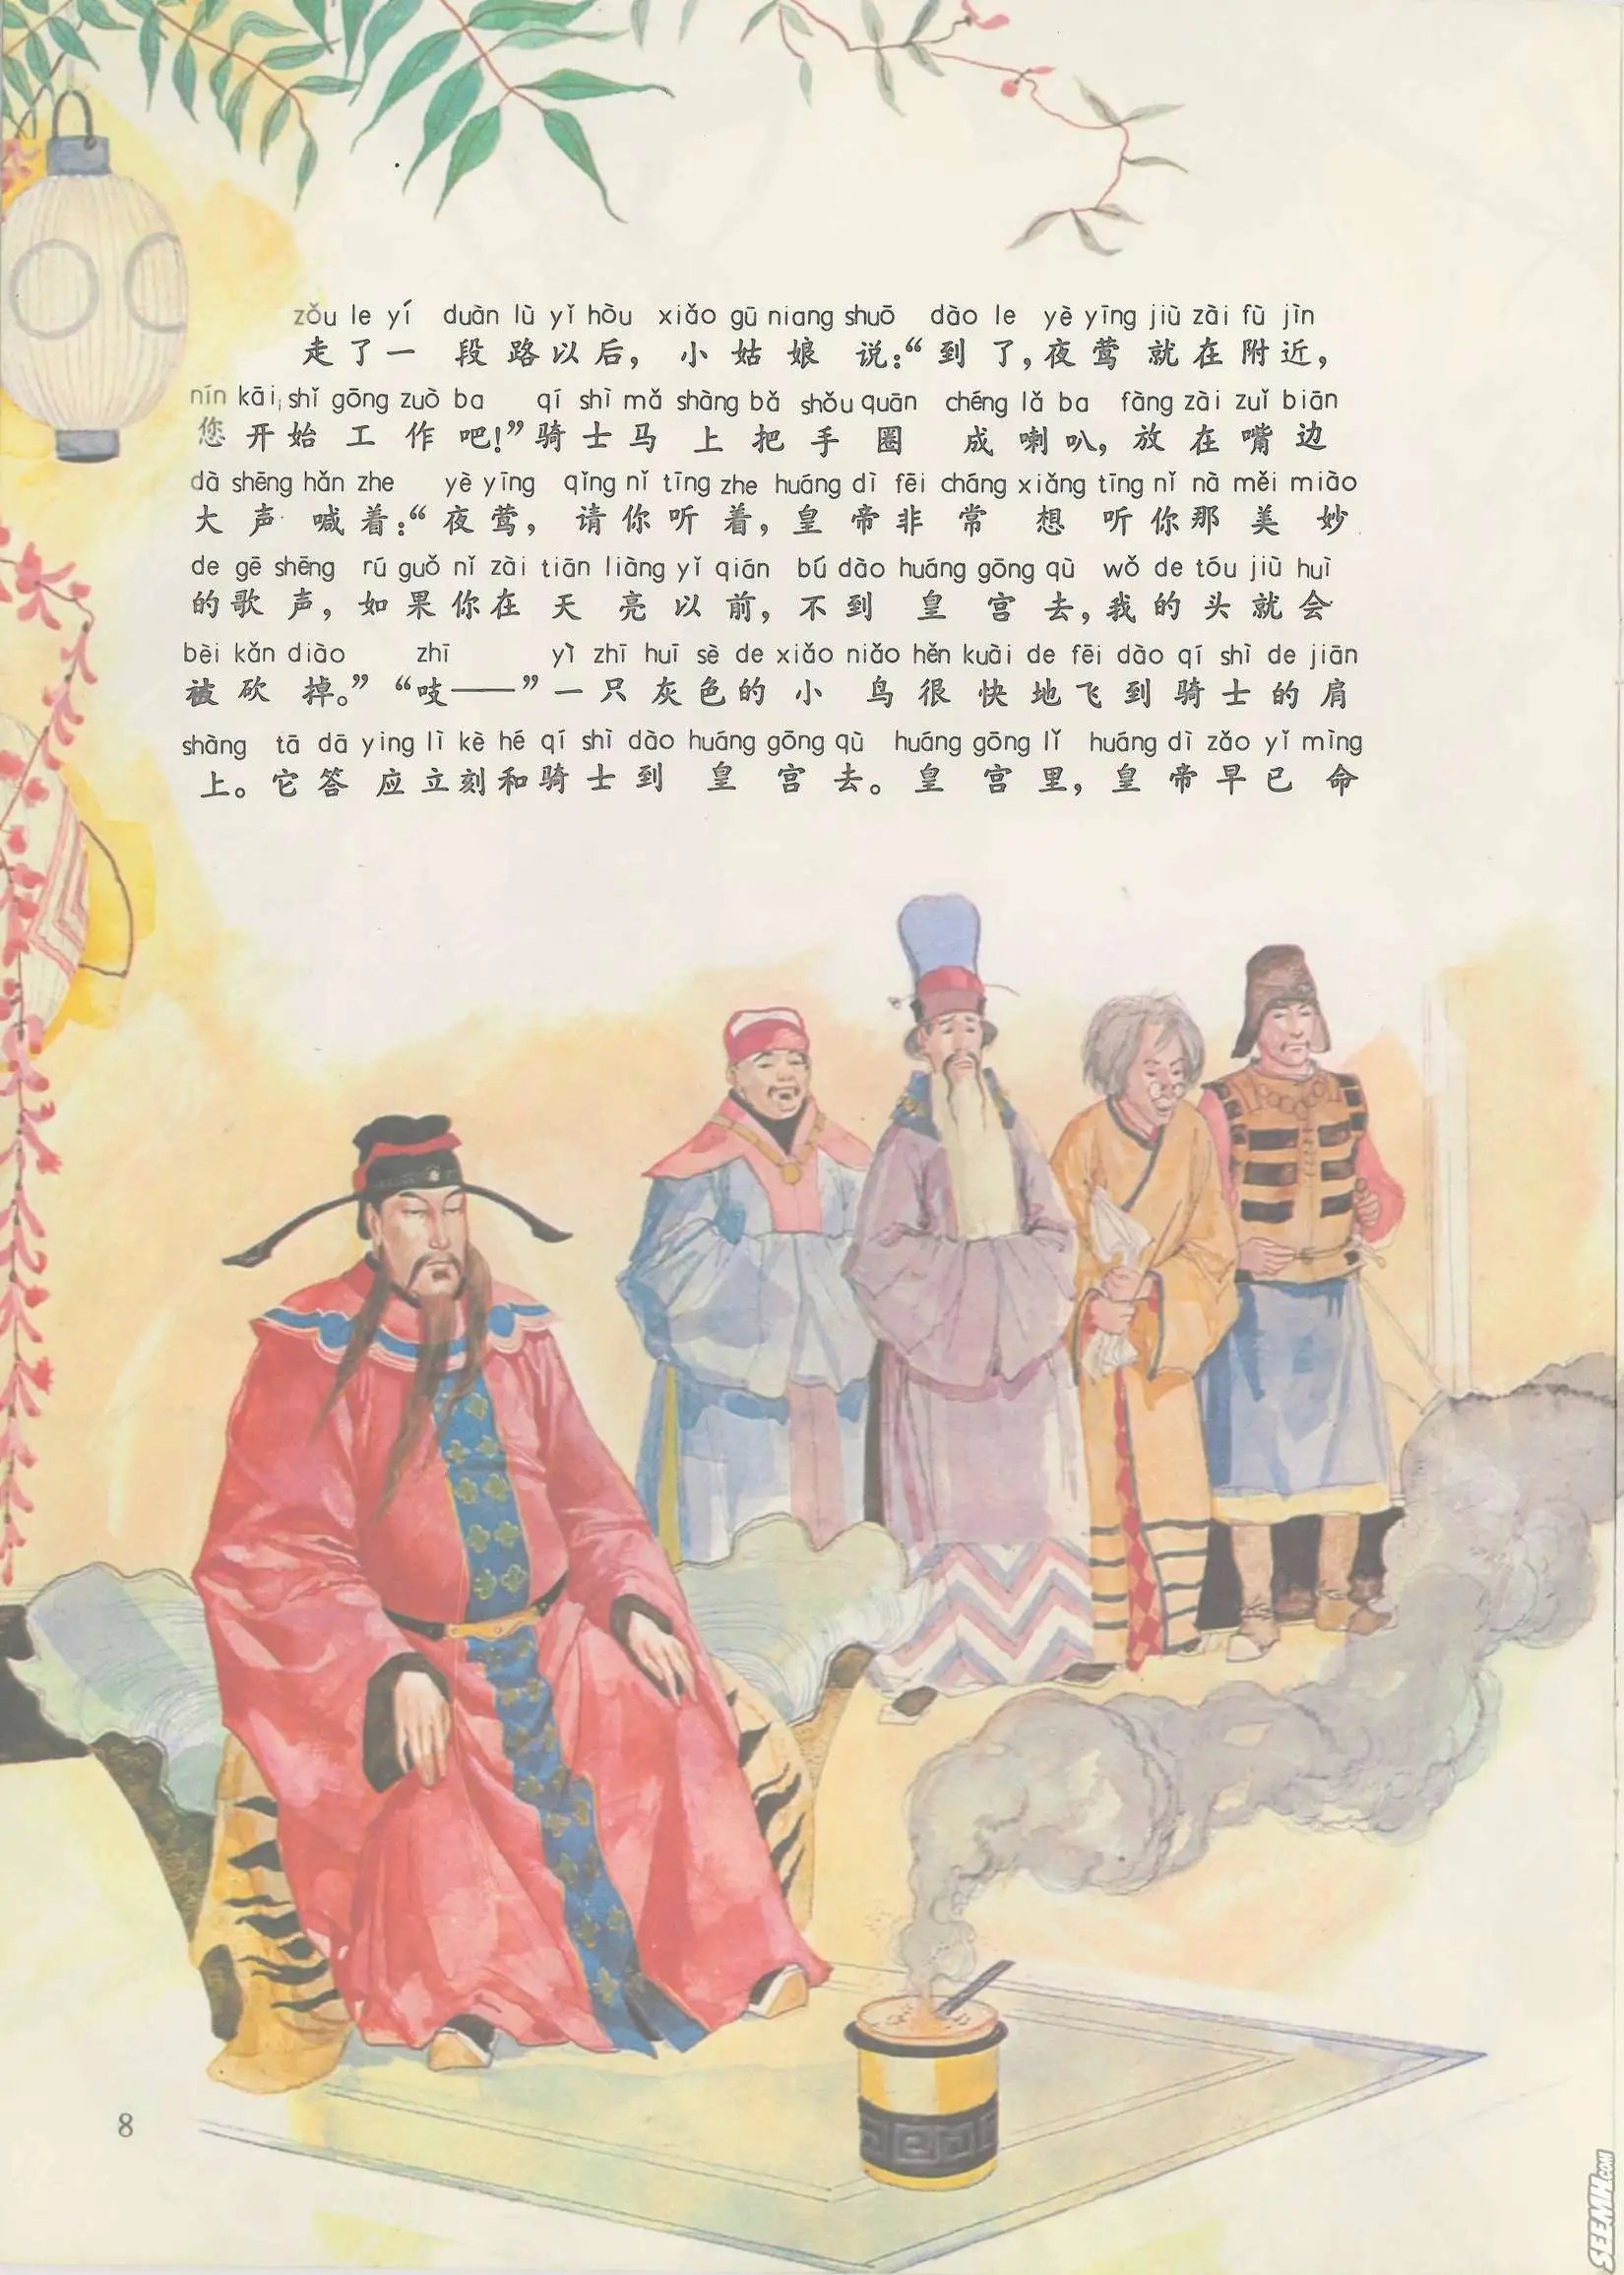 zǒu le yí duàn lù yǐ hòu xiǎo gū niang shuō dào le yè yīng jiù zài fù jìn
走了一段路以后，小姑娘说：“到了，夜莺就在附近，
nín kāi shǐ gōng zuò ba qí shì mǎ shàng bǎ shǒu quān chéng lǎ ba fàng zài zuǐ biān
您开始工作吧！”骑士马上把手圈成喇叭，放在嘴边
dà shēng hǎn zhe yè yīng qǐng nǐ tīng zhe huáng dì fēi cháng xiǎng tīng nǐ nà měi miào
大声喊着：“夜莺，请你听着，皇帝非常想听你那美妙
de gē shēng rú guǒ nǐ zài tiān liàng yǐ qián bú dào huáng gōng qù wǒ de tóu jiù huì
的歌声，如果你在天亮以前，不到皇宫去，我的头就会
bèi kǎn diào zhī yì zhī huī sè de xiǎo niǎo hěn kuài de fēi dào qí shì de jiān
被砍掉。”“吱——”一只灰色的小鸟很快地飞到骑士的肩
shàng tā dā ying lì kè hé qí shì dào huáng gōng qù huáng gōng lǐ huáng dì zǎo yǐ mìng
上。它答应立刻和骑士到皇宫去。皇宫里，皇帝早已命
8
SEEMH.com